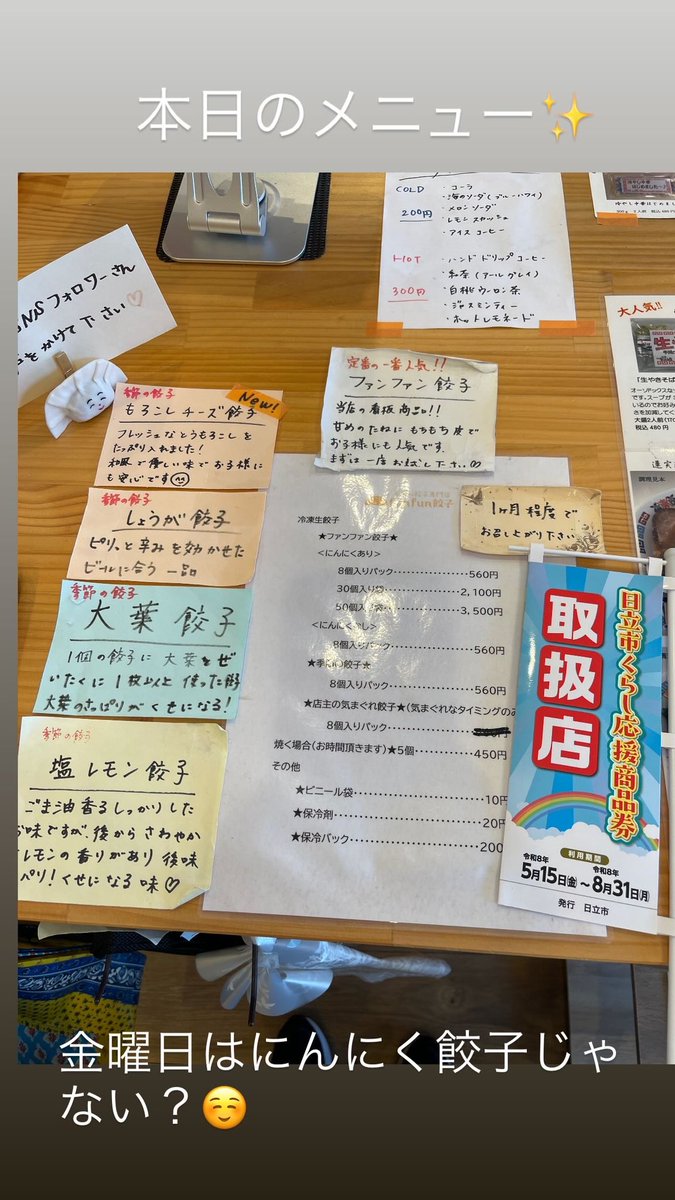 本日のメニュー✨
COLD
200円
・コーラ
・海のソーダ(ブルーハワイ)
・メロンソーダ
・レモンスカッシュ
・アイスコーヒー
HOT
300円
・ハンドドリップコーヒー
・紅茶(アールグレイ)
・白桃ウーロン茶
・ジャスミンティー
・ホットレモネード
SNSフォロワーさん
をかけて下さい♡
大人気!!
税込480円
調理見本
定番の一番人気!!
ファンファン餃子
当店の看板商品!!
甘めのたねにもちもち皮で
お子様にも人気です。
まずは一度お試し下さい♡
季節の餃子
New!
もろこしチーズ餃子
フレッシュなとうもろこしを
たっぷり入れました!
和風で優しい味でお子様に
も安心です
季節の餃子
しょうが餃子
ピリッと辛みを効かせた
ビールに合う一品
季節の餃子
大葉餃子
1個の餃子に大葉をぜ
いたくに1枚以上使った餃
大葉のさっぱりがくせになる!
季節の餃子
塩レモン餃子
ごま油香るしっかりした
お味ですが、後からさわやか
レモンの香りがあり後味
パリ!くせになる味♡
fun餃子
1ヶ月程度で
お召し上がり下さい
冷凍生餃子
★ファンファン餃子★
<にんにくあり>
8個入りパック………………560円
30個入り袋………………2,100円
50個入り袋………………3,500円
<にんにくなし>
8個入りパック………………560円
★季節の餃子★
8個入りパック………………560円
★店主の気まぐれ餃子★(気まぐれなタイミングのみ
8個入りパック………………
焼く場合(お時間頂きます)★5個………450円
その他
★ビニール袋………………10円
★保冷剤………………20円
★保冷バック………………200
日立市くらし応援商品券
取扱店
利用期間
令和8年
5月15日(金)~
令和8年
8月31日(月)
発行 日立市
金曜日はにんにく餃子じゃ
ない?☺️